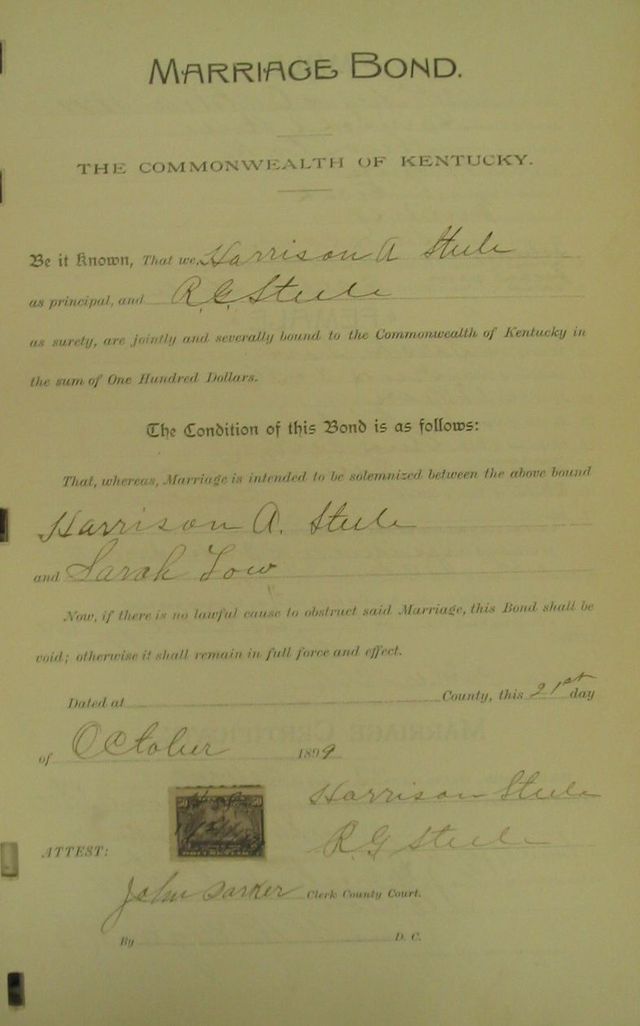 MARRIAGE BOND.
THE COMMONWEALTH OF KENTUCKY.
Be it Known, That we, Harrison A Steele
as principal, and R.G. Steele
as surety, are jointly and severally bound to the Commonwealth of Kentucky in
the sum of One Hundred Dollars.
The Condition of this Bond is as follows:
That, whereas, Marriage is intended to be solemnized between the above bound
Harrison A. Steele
and Sarah Low
Now, if there is no lawful cause to obstruct said Marriage, this Bond shall be
void; otherwise it shall remain in full force and effect.
Dated at County, this 21st day
of October 1899
Harrison Steele
ATTEST: R G Steele
John Parker Clerk County Court.
By D. C.